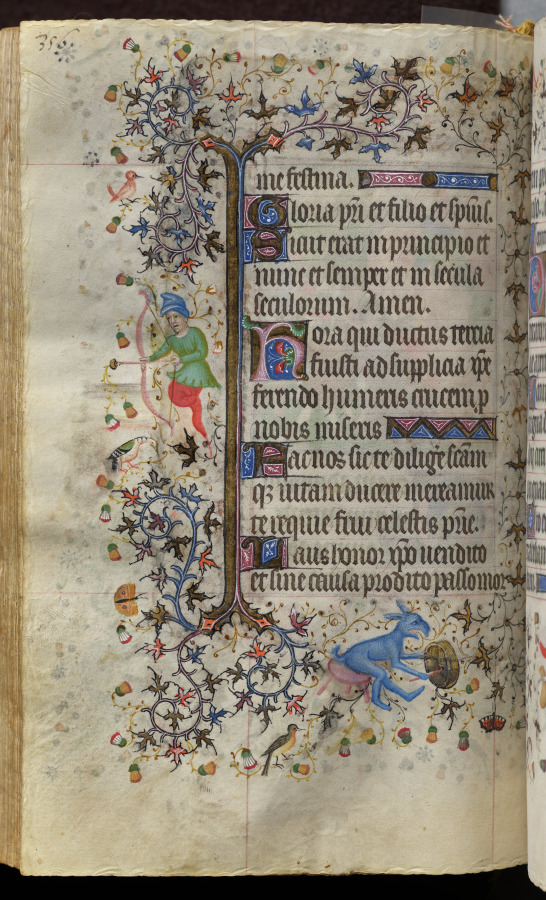 356
me festina.
Gloria pri et filio et spiui s.
Sicut erat in principio et
nunc et semper et in secula
seculorum. Amen.
Hora qui ductus tercia
fuisti ad supplicia xpe
ferendo humeris crucem p
nobis miseris
Fac nos sic te dilige scam
q; uitam ducere mereamur
te requie frui celestis prie.
Laus honor xpo uendito
et sine causa prodito passo mor